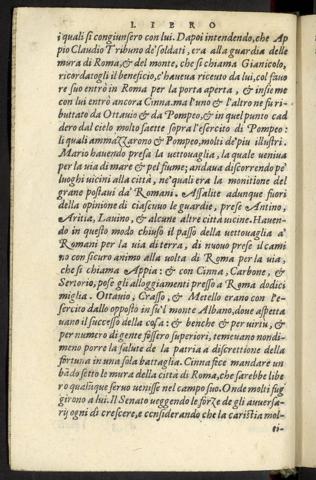 LIBRO
i quali si congiunsero con lui. Dapoi intendendo, che Ap
pio Claudio Tribuno de' soldati, era alla guardia delle
mura di Roma, & del monte, che si chiama Gianicolo,
ricordatogli il beneficio, c'haueua riceuto da lui, col fauo
re suo entrò in Roma per la porta aperta, & insieme
con lui entrò ancora Cinna. ma l'uno & l'altro ne fu ri-
buttato da Ottauio & da Pompeo, & in quel punto cad
dero dal cielo molto saette sopra l'esercito di Pompeo:
li quali ammazzarono & Pompeo, molti de' piu illustri.
Mario hauendo presa la uettouaglia, la quale ueniua
per la uia di mare & pel fiume; andaua discorrendo pe'
luoghi uicini alla città, ne' quali era la monitione del
grano postaui da' Romani. Assalite adunque fuori
della opinione di ciascuo le guardie, prese Antino,
Aritia, Lauino, & alcune altre città uicine. Hauen-
do in questo modo chiuso il passo della uettouaglia a'
Romani per la uia di terra, di nuouo prese il cami
no con sicuro animo alla uolta di Roma per la uia,
che si chiama Appia: & con Cinna, Carbone, &
Sertorio, pose gli alloggiamenti presso a Roma dodici
miglia. Ottauio, Crasso, & Metello erano con l'e-
sercito dallo opposto in su'l monte Albano, doue aspetta
uano il successo della cosa: & benche & per uirtu, &
per numero di gente fossero superiori, temeuano nondi-
meno porre la salute de la patria a discrettione della
fortuna in una sola battaglia. Cinna fece mandare un
bādo sotto le mura della città di Roma, che sarebbe libe
ro qualūque seruo uenisse nel campo suo. Onde molti fug
girono a lui. Il Senato ueggendo le forze de gli auuersa-
rij ogni dì crescere, e considerando che la caristia mol-
ti-